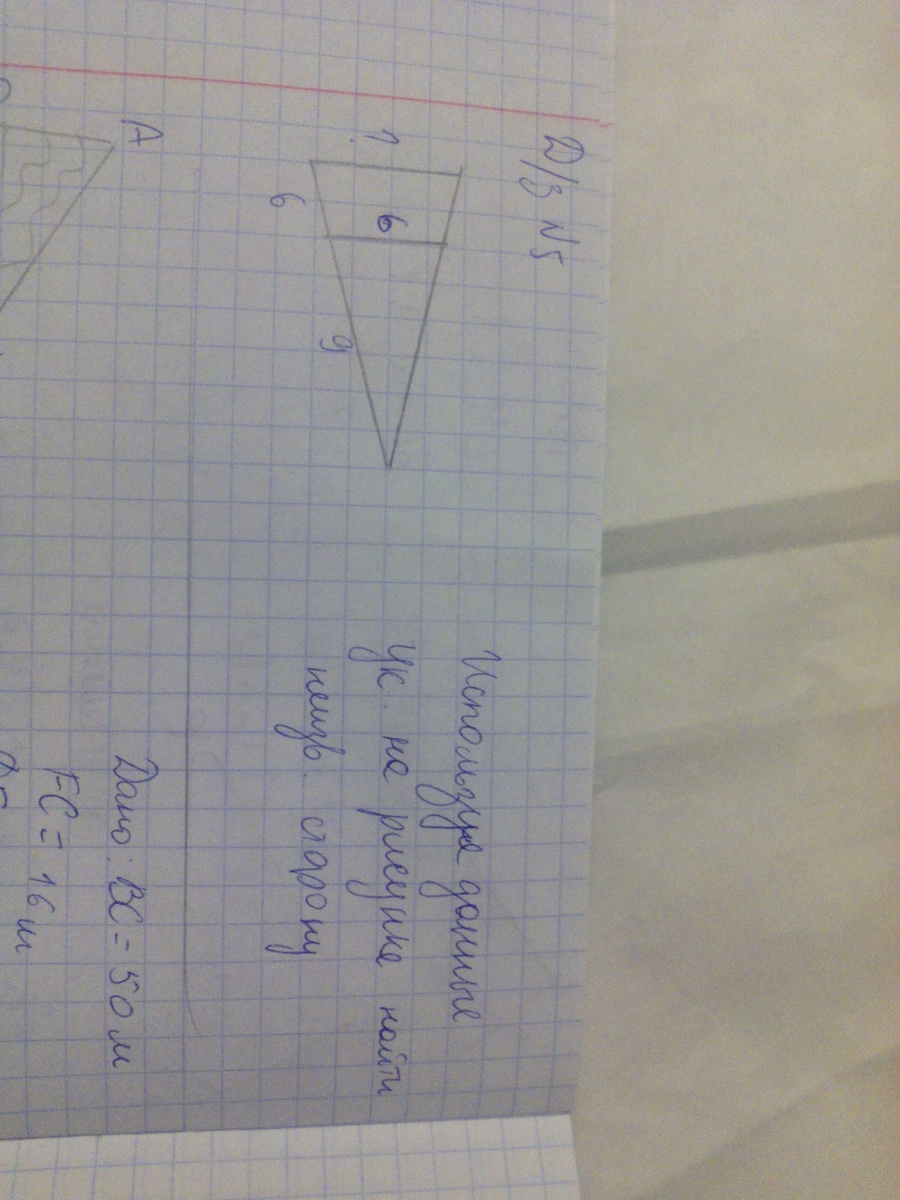 Д/з №5
?
6
6
9
Используя данные
ук. на рисунке найти
неизв. сторону
A
Дано: BC = 50 м
FC = 16 м